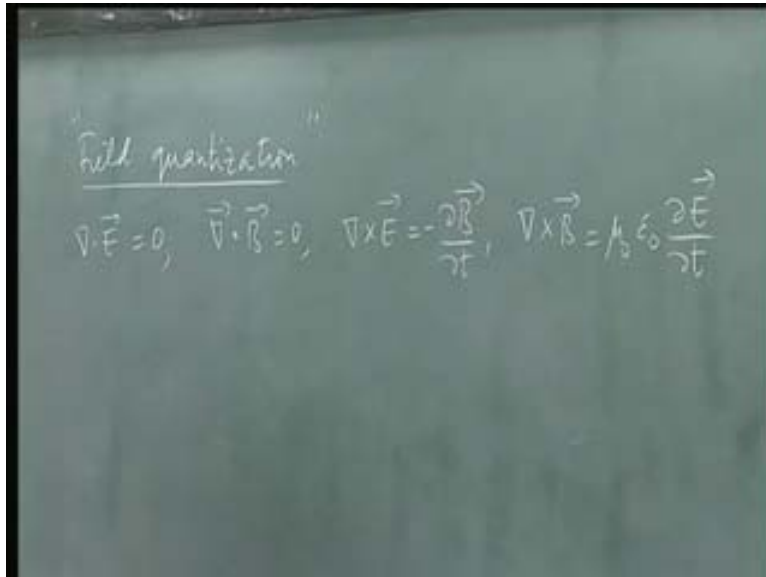 "Field quantization"
∇·E⃗ = 0, ∇⃗·B⃗ = 0, ∇×E⃗ = -∂B⃗/∂t, ∇×B⃗ = μ₀ε₀ ∂E⃗/∂t